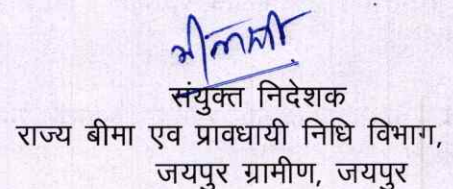 संयुक्त निदेशक
राज्य बीमा एव प्रावधायी निधि विभाग,
जयपुर ग्रामीण, जयपुर